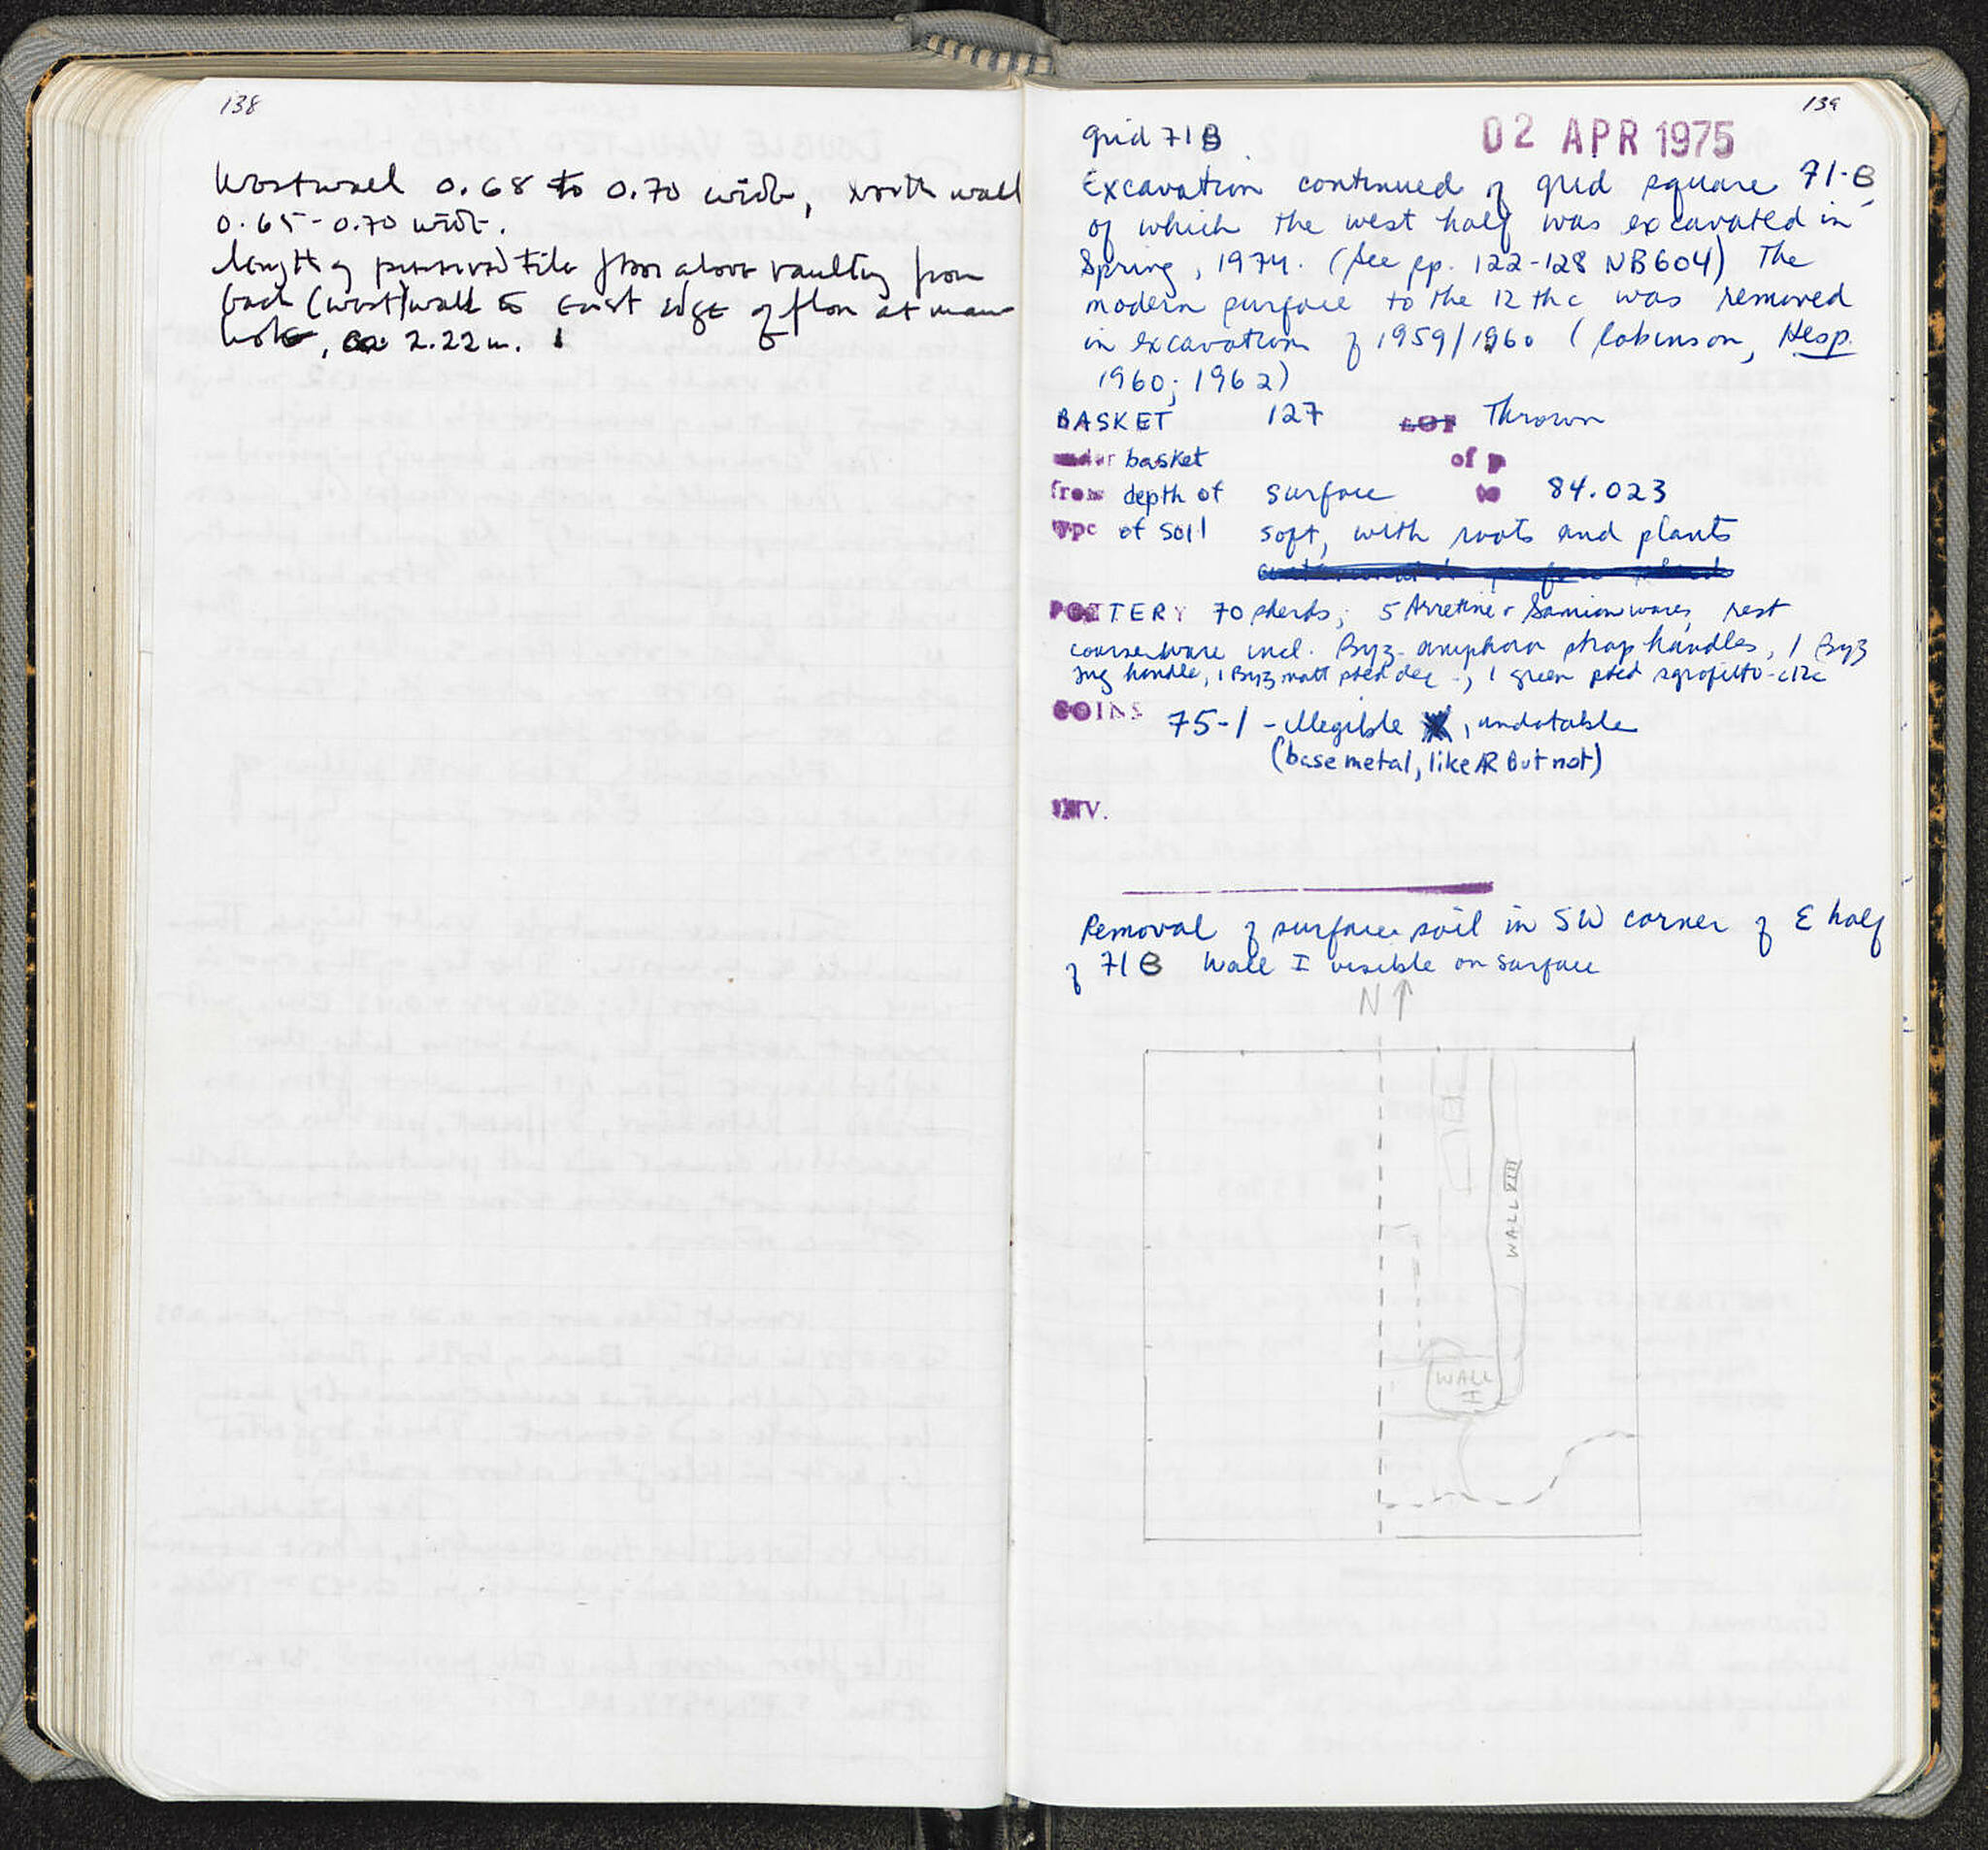 138
Westwall 0.68 to 0.70 wide, north wall
0.65-0.70 wide.
length of preserved tile floor above vaulting from
back (west) wall to east edge of floor at man
hole, ca 2.22m.
139
grid 71B
02 APR 1975
Excavation continued of grid square 71-B
of which the west half was excavated in
Spring, 1974. (See pp. 122-128 NB604) The
modern surface to the 12 th c was removed
in excavation of 1959/1960 (Robinson, Hesp.
1960; 1962)
BASKET 127 LOT Thrown
under basket of p
from depth of surface to 84.023
type of soil soft, with roots and plants
POTTERY 70 sherds; 5 Arretine + Samian wares, rest
coarseware incl. Byz. amphora strap handles, 1 Byz
jug handle, 1 Byz matt ptd dec -, 1 green ptd sgrafitto-c12c
COINS 75-1 - illegible, undatable
(base metal, like AR But not)
INV.
Removal of surface soil in SW corner of E half
of 71B Wall I visible on surface
N
WALL XIII
WALL
I